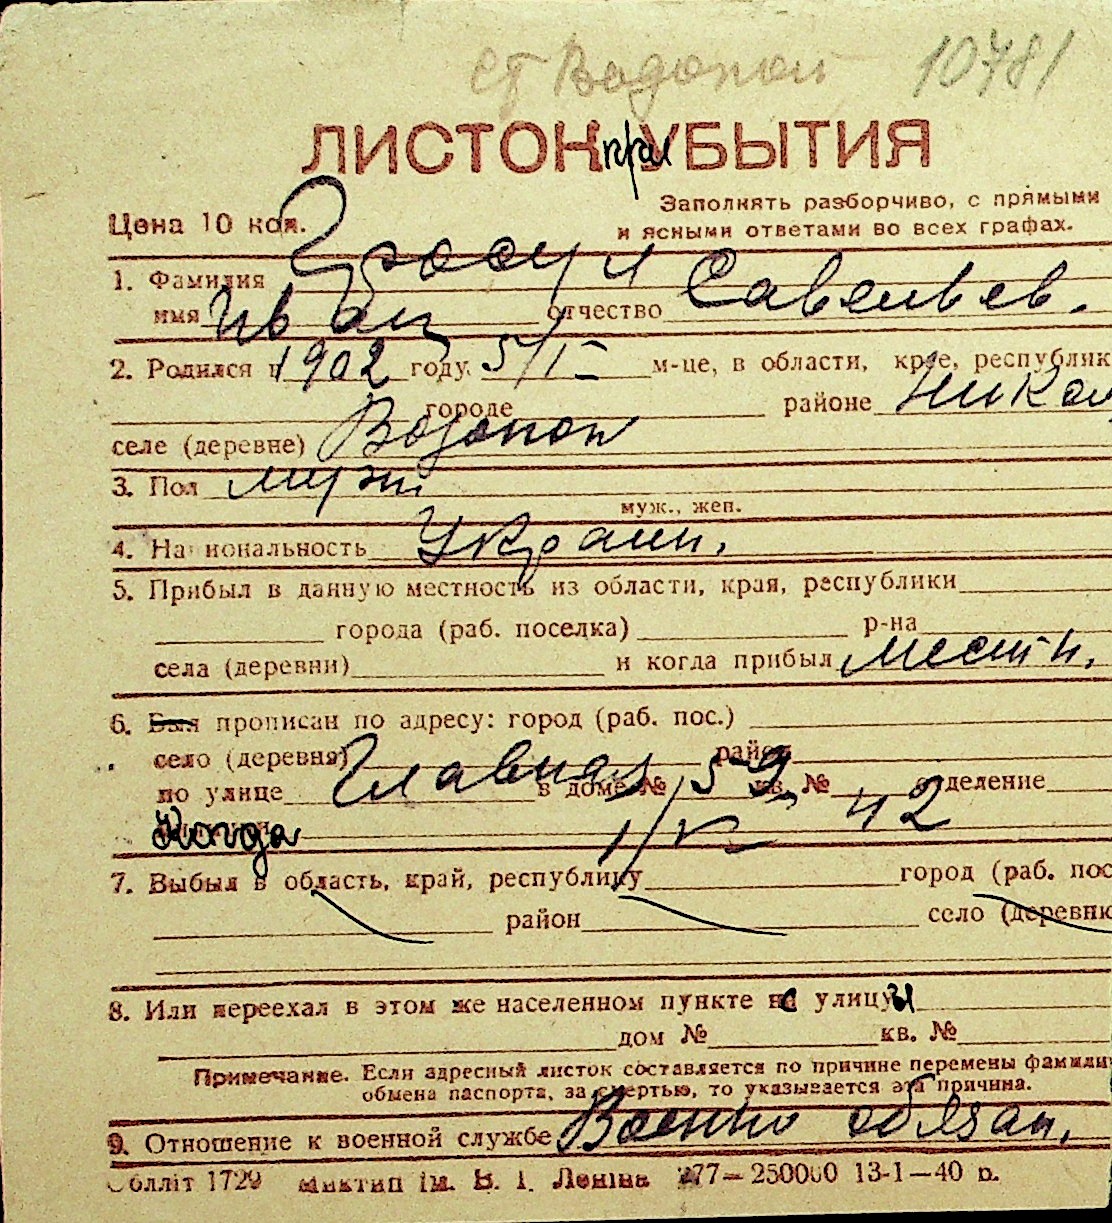 ст Водопой 10781
ЛИСТОК при УБЫТИЯ
Заполнять разборчиво, с прямыми
Цена 10 коп. и ясными ответами во всех графах.
1. Фамилия Гросул
имя Иван отчество Савельев.
2. Родился в 1902 году 5/I м-це, в области, крае, республик
городе районе Никол
селе (деревне) Водопой
3. Пол муж
муж., жен.
4. Национальность Украин.
5. Прибыл в данную местность из области, края, республики
города (раб. поселка) р-на
села (деревни) и когда прибыл местн.
6. Был прописан по адресу: город (раб. пос.)
село (деревня) район
по улице Главная в доме № 59 кв. № отделение
Когда 1/V 42
7. Выбыл в область, край, республику город (раб. пос
район село (деревню
8. Или переехал в этом же населенном пункте с улицы
дом № кв. №
Примечание. Если адресный листок составляется по причине перемены фамили
обмена паспорта, за смертью, то указывается эта причина.
9. Отношение к военной службе Военно обязан.
Обллiт 1729 Миктип iм. В. I. Ленiна 277—250000 13-1—40 р.